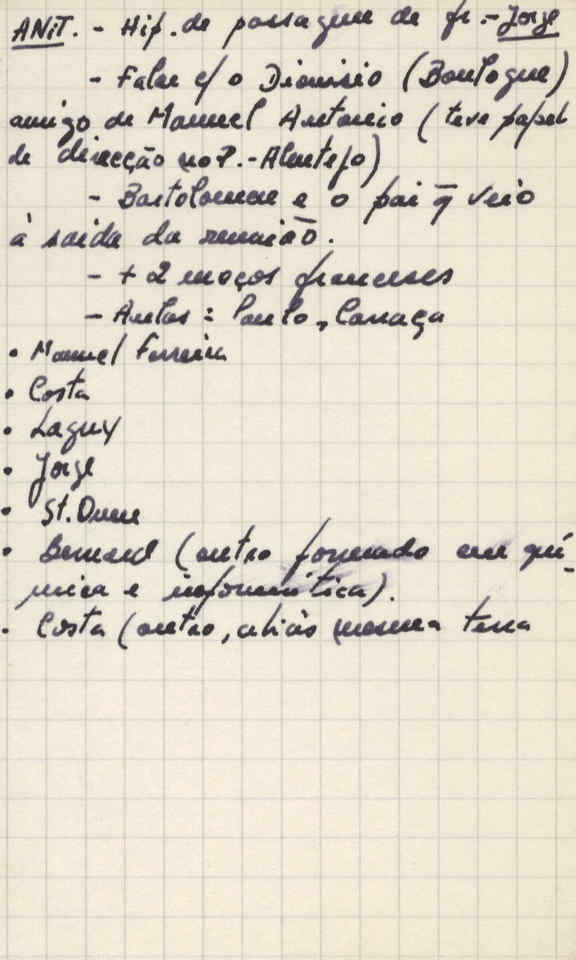 ANiT. - Hip. de passagem de fr. - Jorge
- Falar c/ o Dionisio (Boulogne)
amigo de Manuel Antonio (teve papel
de direcção no P. - Alentejo)
- Bartolomeu e o pai q̄ veio
à saida da reunião.
- + 2 moços franceses
- Aulas : Paulo,
• Manuel Ferreira
• Costa
• Laguy
• Jorge
• St. Omer
• Bernard (outro formado em quí-
mica e informática).
• Costa (outro, aliás mesma terra